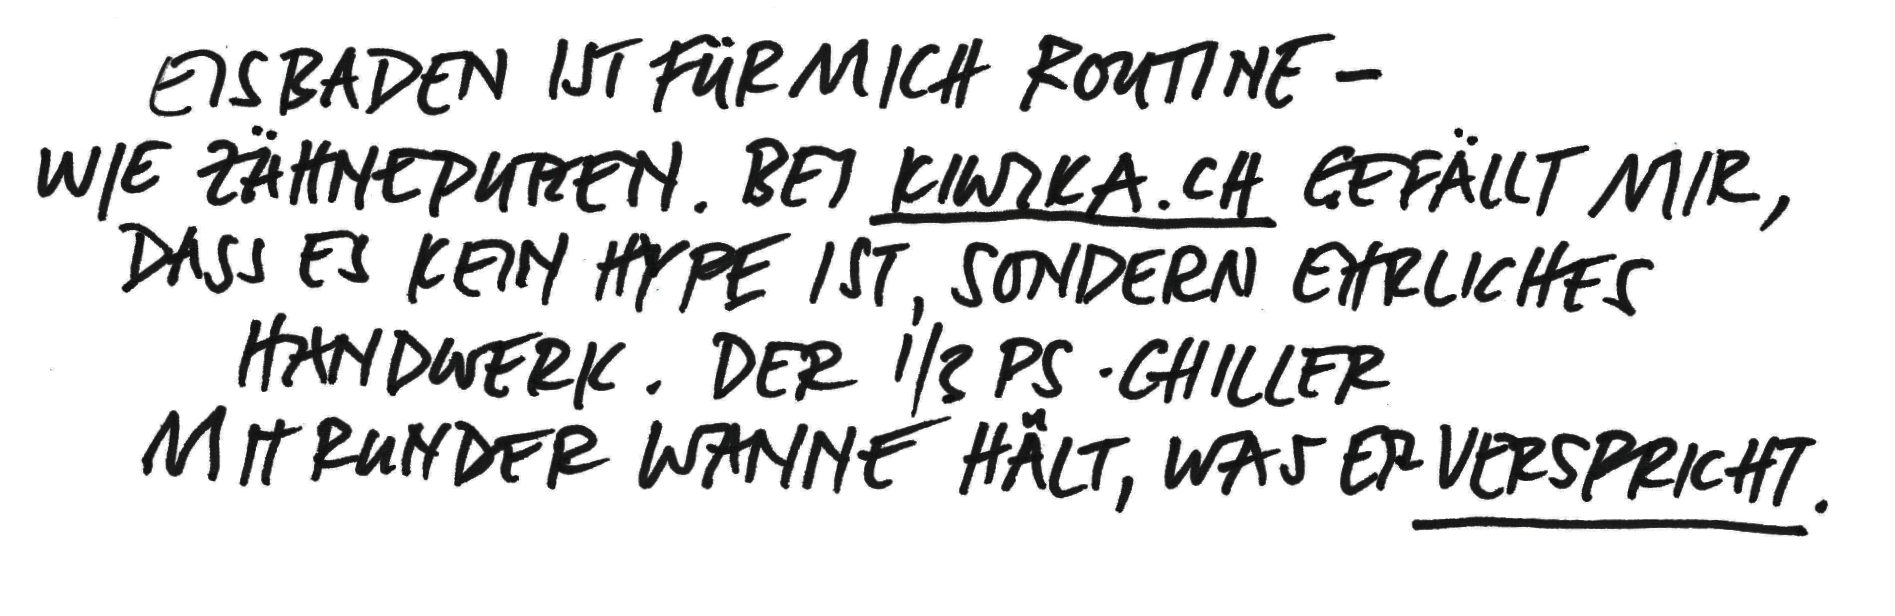 EISBADEN IST FÜR MICH ROUTINE –
WIE ZÄHNEPUTZEN. BEI KIWIKA.CH GEFÄLLT MIR,
DASS ES KEIN HYPE IST, SONDERN EHRLICHES
HANDWERK. DER 1/3 PS-CHILLER
MIT RUNDER WANNE HÄLT, WAS ER VERSPRICHT.